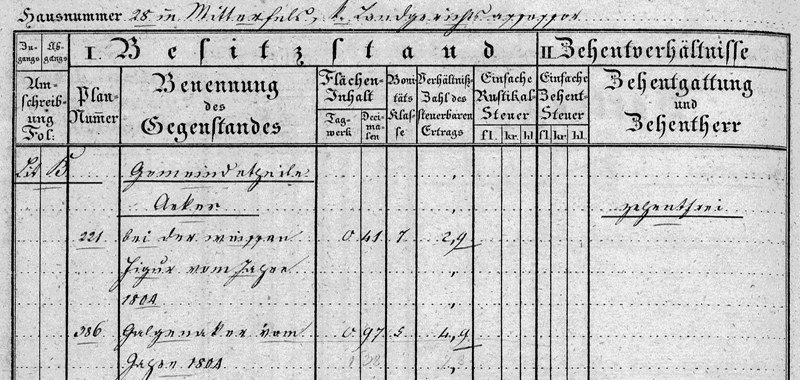 Hausnummer 28 in Mitterfels, k. Landgerichtsassessor
Zugangs Abgangs
I. Besitzstand
II. Zehentverhältnisse
Umschreibung Fol:
Plan-Numer
Benennung des Gegenstandes
Flächen-Inhalt
Tagwerk
Decimalen
Bonitäts Klasse
Verhältniß-Zahl des steuerbaren Ertrags
Einfache Rustikal-Steuer
fl. kr. hl.
Einfache Zehent-Steuer
fl. kr. hl.
Zehentgattung und Zehentherr
Lit B
Gemeindetheile
Aeker
zehentfrei
221 bei der weissen 0 41 7 2,9
Figur vom Jahre
1804
386 Galgenaker vom 0 97 5 4,9
Jahre 1804